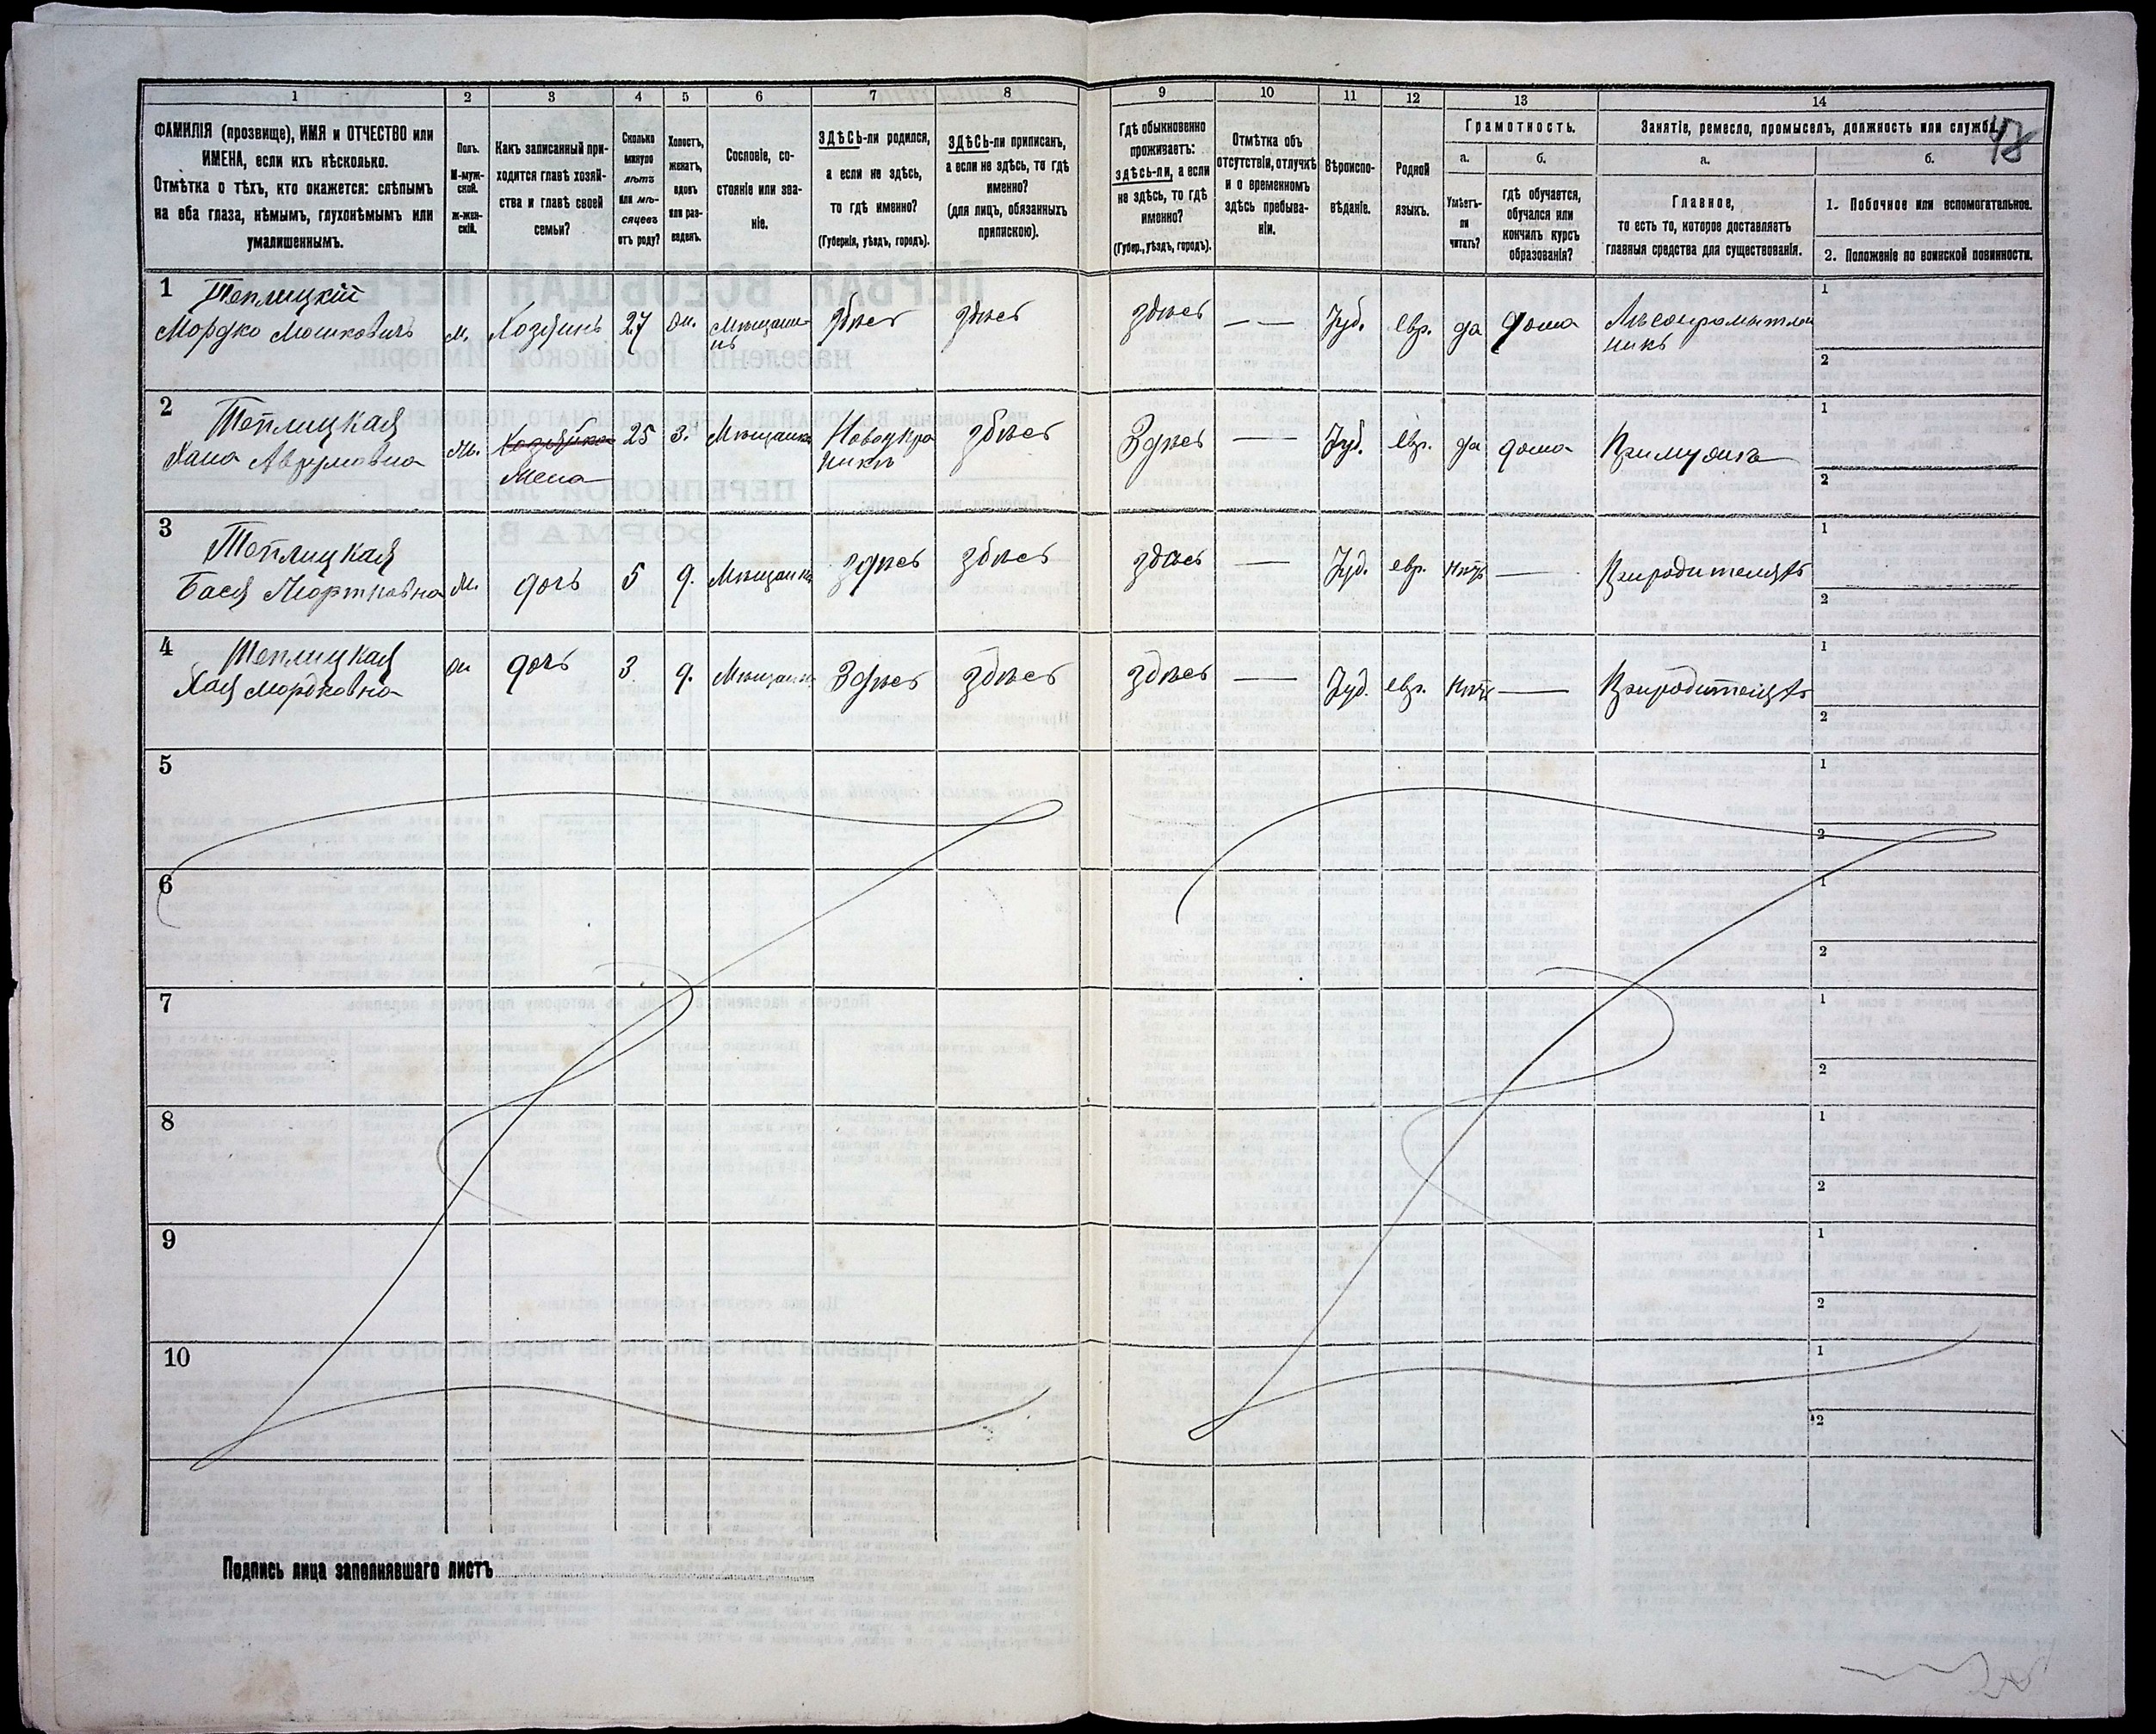 1 2 3 4 5 6 7 8 9 10 11 12 13 14
ФАМИЛІЯ (прозвище), ИМЯ и ОТЧЕСТВО или
ИМЕНА, если ихъ нѣсколько.
Отмѣтка о тѣхъ, кто окажется: слѣпымъ
на оба глаза, нѣмымъ, глухонѣмымъ или
умалишеннымъ.
Полъ.
М-муж-
ской.
ж-жен-
скій.
Какъ записанный при-
ходится главѣ хозяй-
ства и главѣ своей
семьи?
Сколько
минуло
лѣтъ
или мѣ-
сяцевъ
отъ роду?
Холостъ,
женатъ,
вдовъ
или раз-
веденъ.
Сословіе, со-
стояніе или зва-
ніе.
ЗДѢСЬ-ли родился,
а если не здѣсь,
то гдѣ именно?
(Губернія, уѣздъ, городъ).
ЗДѢСЬ-ли приписан,
а если не здѣсь, то гдѣ
именно?
(для лицъ, обязанныхъ
припискою).
Гдѣ обыкновенно
проживаетъ:
здѣсь-ли, а если
не здѣсь, то гдѣ
именно?
(Губер., уѣздъ, городъ).
Отмѣтка объ
отсутствіи, отлучкѣ
и о временномъ
здѣсь пребыва-
ніи.
Вѣроиспо-
вѣданіе.
Родной
языкъ.
Грамотность.
а.
Умѣетъ-
ли
читать?
б.
гдѣ обучается,
обучался или
кончилъ курсъ
образованія?
Занятіе, ремесло, промыселъ, должность или служба.
48
а.
Главное,
то есть то, которое доставляетъ
главныя средства для существованія.
б.
1. Побочное или вспомогательное.
2. Положеніе по воинской повинности.
1 Теплицкій
Мордко Мошковичъ м. Хозяинъ 27 ж. Мѣщани-
нъ здѣсь здѣсь здѣсь — — Іуд. евр. да дома Лѣсопромышлен
никъ
1
2
2 Теплицкая
Хана Аврумовна ж. Хозяйка 25 з. Мѣщанка здѣсь Здѣсь — Іуд. евр. да дома При мужѣ
жена
1
2
3 Теплицкая
Бася Мортковна ж. дочь 5 д. Мѣщанка здѣсь здѣсь здѣсь — Іуд. евр. нѣтъ — При родителяхъ
1
2
4 Теплицкая
Хая Мордковна ж дочь 3 д. Мѣщанка Здѣсь здѣсь здѣсь — Іуд. евр. нѣтъ — При родителяхъ
1
2
5
1
2
6
1
2
7
1
2
8
1
2
9
1
2
10
1
2
Подпись лица заполнявшаго листъ